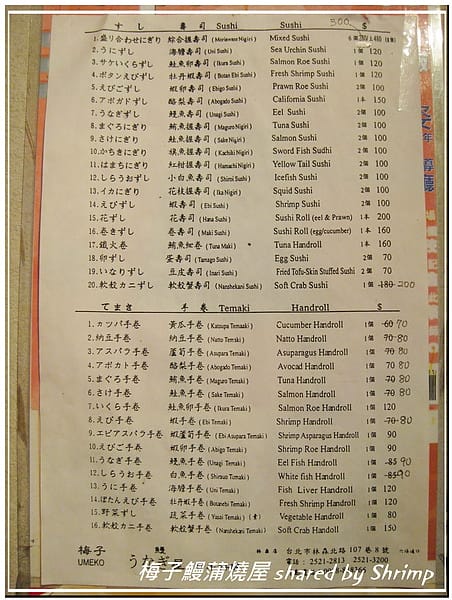 すし 壽司 Sushi Sushi 300 $
1.盛り合わせにぎり 綜合握壽司 (Moriawase Nigiri) Mixed Sushi
2.うにずし 海膽壽司 (Uni Sushi) Sea Urchin Sushi 1個 120
3.サケいくらずし 鮭魚卵壽司 (Ikura Sushi) Salmon Roe Sushi 1個 120
4.ボタンえびずし 牡丹蝦壽司 (Botan Ebi Sushi) Fresh Shrimp Sushi 1個 120
5.えびごずし 蝦卵壽司 (Ebigo Sushi) Prawn Roe Sushi 2個 100
6.アボガドずし 酪梨壽司 (Abogado Sushi) California Sushi 1本 150
7.うなぎずし 鰻魚壽司 (Unagi Sushi) Eel Sushi 2個 100
8.まぐろにぎり 鮪魚握壽司 (Maguro Nigiri) Tuna Sushi 2個 100
9.さけにぎり 鮭魚握壽司 (Sake Nigiri) Salmon Sushi 2個 100
10.かちきにぎり 旗魚握壽司 (Kachiki Nigiri) Sword Fish Sudhi 2個 100
11.はまちにぎり 紅柑握壽司 (Hamachi Nigiri) Yellow Tail Sushi 2個 100
12.しらうおずし 小白魚壽司 (Shirni Sushi) Icefish Sushi 2個 100
13.イカにぎり 花枝握壽司 (Ika Nigiri) Squid Sushi 2個 100
14.えびずし 蝦壽司 (Ebi Sushi) Shrimp Sushi 2個 100
15.花ずし 花壽司 (Hana Sushi) Sushi Roll (eel & Prawn) 1本 200
16.巻きずし 卷壽司 (Maki Sushi) Sushi Roll (egg/cucumber) 1本 160
17.鐵火巻 鮪魚細卷 (Tuna Maki) Tuna Handroll 1本 160
18.卵ずし 蛋壽司 (Tamago Sushi) Egg Sushi 2個 70
19.いなりずし 豆皮壽司 (Inari Sushi) Fried Tofu-Skin Stuffed Sushi 2個 70
20.軟殼カニずし 軟殼蟹壽司 (Nanshekani Sushi) Soft Crab Sushi 1個 180 200
てまき 手卷 Temaki Handroll $
1.カツパ手巻 黃瓜手卷 (Katsupa Temaaki) Cucumber Handroll 1個 60 70
2.納豆手巻 納豆手卷 (Natto Temaki) Natto Handroll 1個 70 80
3.アスパラ手巻 蘆筍手卷 (Asupara Temaki) Asuparagus Handroll 1個 70 80
4.アボカト手巻 酪梨手卷 (Abogado Temaki) Avocad Handroll 1個 70 80
5.まぐろ手巻 鮪魚手卷 (Maguro Temaki) Tuna Handroll 1個 70 80
6.さけ手巻 鮭魚手卷 (Sake Temaki) Salmon Handroll 1個 70 80
7.いくら手巻 鮭魚卵手卷 (Ikura Temaki) Salmon Roe Handroll 1個 120
8.えび手巻 蝦手卷 (Ebi Temaki) Shrimp Handroll 1個 70 80
9.エビアスパラ手巻 蝦蘆筍手卷 (Ebi Asupara Temaki) Shrimp Asparagus Handroll 1個 90
10.えびご手巻 蝦卵手卷 (Abigo Temaki) Shrimp Roe Handroll 1個 90
11.うなぎ手巻 鰻魚手卷 (Unagi Temaki) Eel Fish Handroll 1個 85 90
12.しらうお手巻 白魚手卷 (Shirauo Temaki) White fish Handroll 1個 85 90
13.うに手巻 海膽手卷 (Uni Temaki) Fish Liver Handroll 1個 120
14.ぼたんえび手巻 牡丹蝦手卷 (Botanebi Temaki) Fresh Shrimp Handroll 1個 120
15.野菜ずし 蔬菜手卷 (Yasai Temaki) (素) Vegetable Handroll 1個 80
16.軟殼カニ手巻 軟殼蟹手卷 (Nanshekani Temaki) Soft Crab Handroll 1個 150
梅子 UMEKO うなぎ 林森店 台北市林森北路107巷8號
電話：2521-2813 2521-3200
梅子鰻蒲燒屋 shared by Shrimp